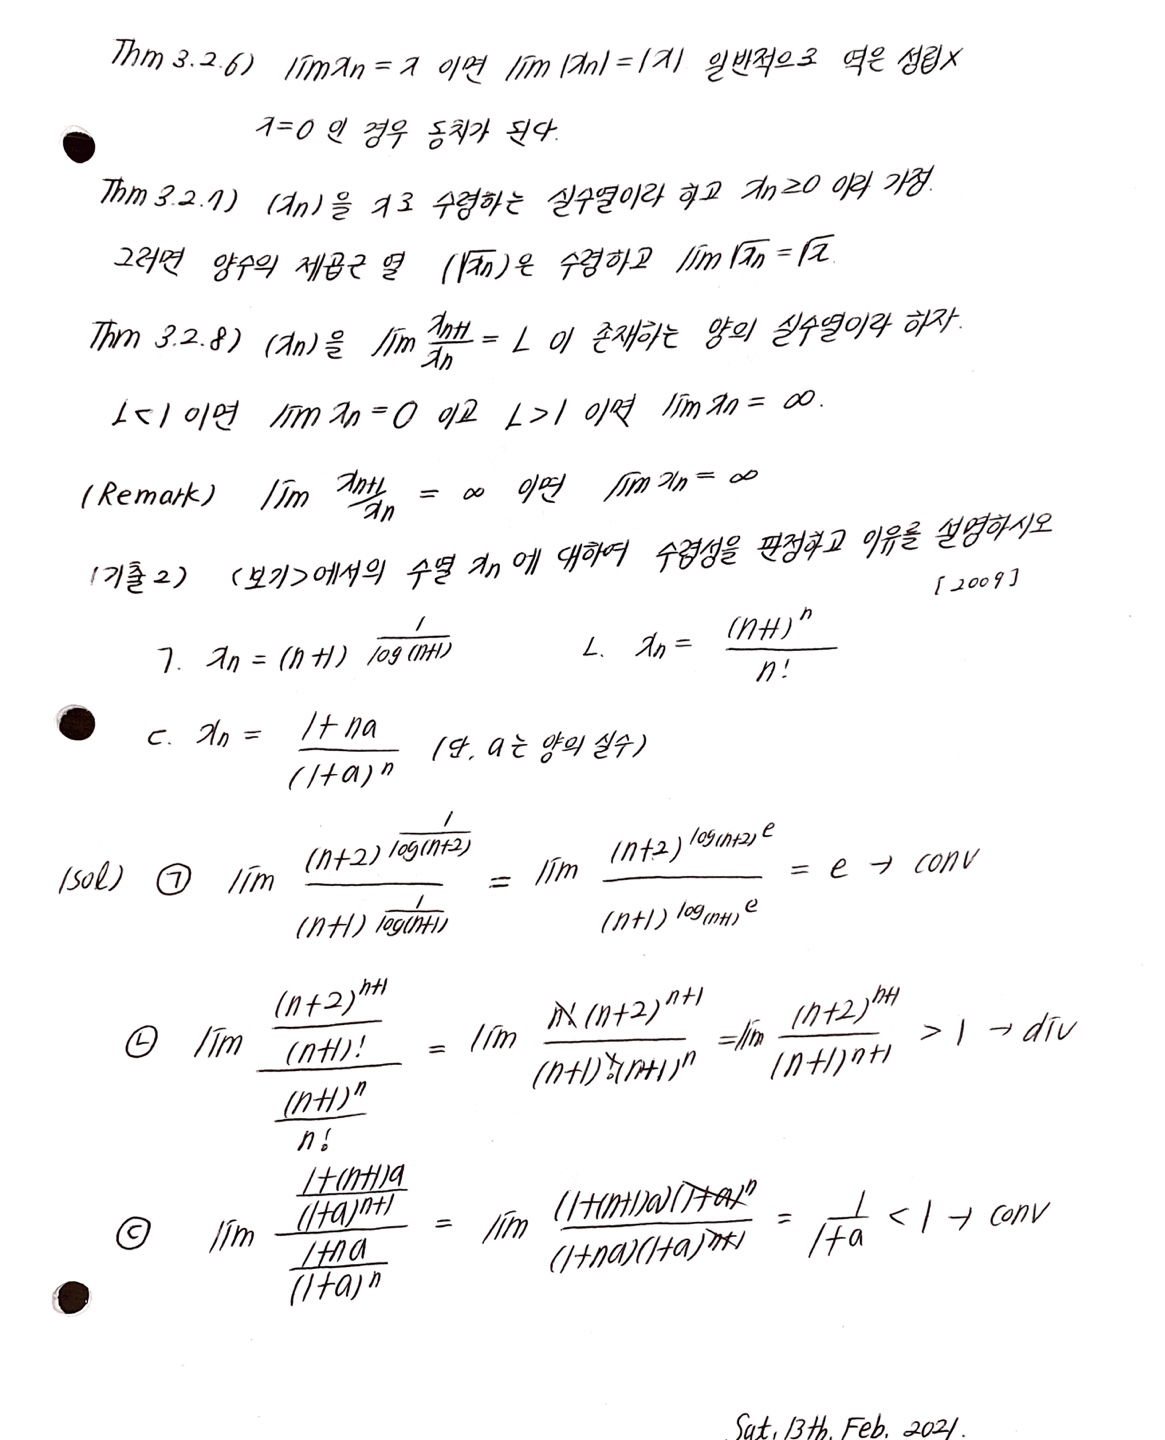 Thm 3.2.6) lim xn = x 이면 lim |xn| = |x| 일반적으로 역은 성립 X
x=0 인 경우 동치가 된다.
Thm 3.2.7) (xn)을 x로 수렴하는 실수열이라 하고 xn≥0 이라 가정.
그러면 양수의 제곱근 열 (√xn)은 수렴하고 lim √xn = √x.
Thm 3.2.8) (xn)을 lim xn+1/xn = L 이 존재하는 양의 실수열이라 하자.
L<1 이면 lim xn = 0 이고 L>1 이면 lim xn = ∞.
(Remark) lim xn+1/xn = ∞ 이면 lim xn = ∞
(기출2) <보기>에서의 수열 xn에 대하여 수렴성을 판정하고 이유를 설명하시오
[2009]
ㄱ. xn = (n+1)^(1/log(n+1)) ㄴ. xn = (n+1)^n / n!
ㄷ. xn = (1+na)/(1+a)^n (단, a는 양의 실수)
(sol) ㉠ lim (n+2)^(1/log(n+2)) / (n+1)^(1/log(n+1)) = lim (n+2)^(log_(n+2) e) / (n+1)^(log_(n+1) e) = e → conv
㉡ lim ((n+2)^(n+1)/(n+1)!) / ((n+1)^n/n!) = lim n!(n+2)^(n+1) / (n+1)!(n+1)^n = lim (n+2)^(n+1) / (n+1)^(n+1) > 1 → div
㉢ lim ((1+(n+1)a)/(1+a)^(n+1)) / ((1+na)/(1+a)^n) = lim (1+(n+1)a)(1+a)^n / (1+na)(1+a)^(n+1) = 1/(1+a) < 1 → conv
Sat, 13th, Feb, 2021.